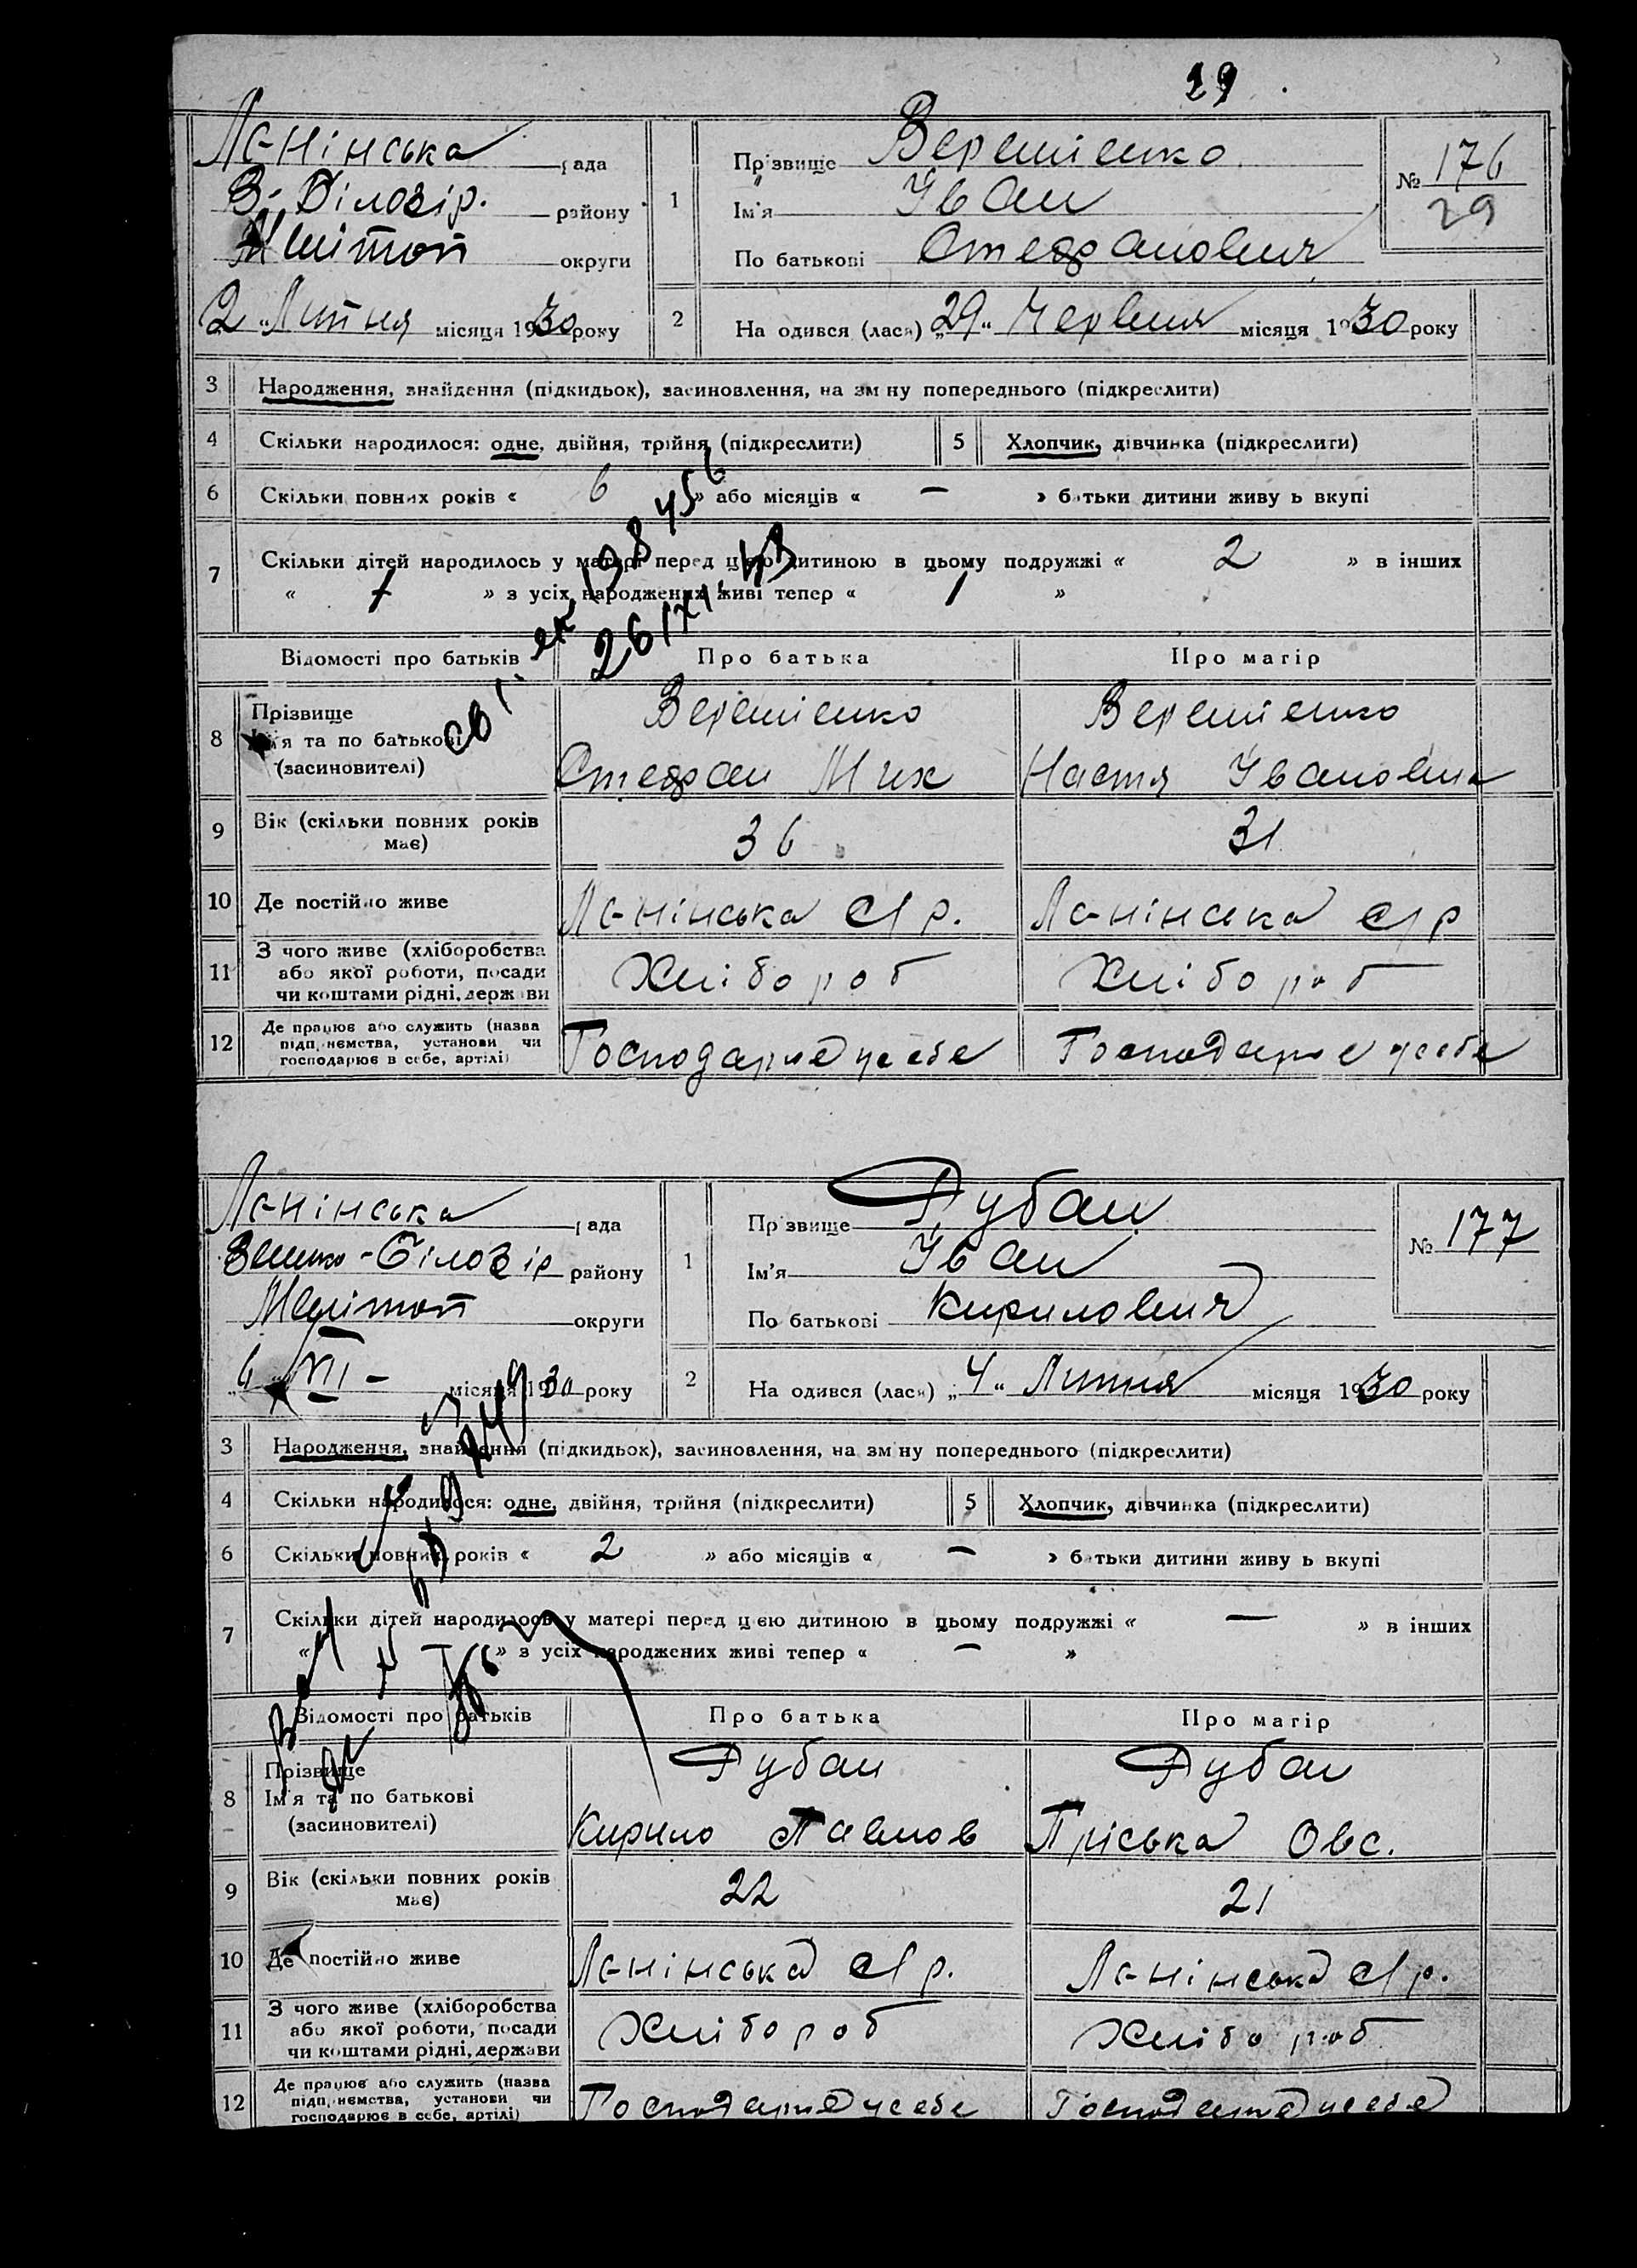 29
Ленінська рада
В-Білозір. району
Мелітоп округи
„2„ Липня місяця 1930 року
1
Прізвище Верешіенко
Ім'я Іван
По батькові Стефанович
№ 176
29
2
На одився (лася) „29“ Червня місяця 1930 року
3 Народження, знайдення (підкидьок), засиновлення, на зм ну попереднього (підкреслити)
4 Скільки народилося: одне, двійня, трійня (підкреслити) 5 Хлопчик, дівчинка (підкреслити)
6 Скільки повних років « 6 » або місяців « — » батьки дитини живу ь вкупі
7 Скільки дітей народилось у матері перед цією дитиною в цьому подружжі « 2 » в інших
« » з усіх народжених живі тепер « 1 »
26/XI 43
Відомості про батьків Про батька Про матір
8 Прізвище
Ім'я та по батькові
(засиновителі)
Верешіенко Верешіенко
Стефан Мих Настя Івановна
9 Вік (скільки повних років має) 36 31
10 Де постійно живе Ленінська с/р. Ленінська с/р
11 З чого живе (хліборобства
або якої роботи, посади
чи коштами рідні, держави
Хлібороб Хлібороб
12 Де працює або служить (назва
підп, иємства, установи чи
господарює в себе, артілі)
Господарює у себе Господарює у себе
Ленінська рада
Велико-Білозір району
Мелітоп округи
„6„ VII - місяця 1930 року
1
Прізвище Дубан
Ім'я Іван
По батькові Кирилович
№ 177
2
На одився (лася) „4“ Липня місяця 1930 року
3 Народження, знайдення (підкидьок), засиновлення, на зм ну попереднього (підкреслити)
4 Скільки народилося: одне, двійня, трійня (підкреслити) 5 Хлопчик, дівчинка (підкреслити)
6 Скільки повних років « 2 » або місяців « — » батьки дитини живу ь вкупі
7 Скільки дітей народилось у матері перед цією дитиною в цьому подружжі « — » в інших
« » з усіх народжених живі тепер « — »
Відомості про батьків Про батька Про матір
8 Прізвище
Ім'я та по батькові
(засиновителі)
Дубан Дубан
Кирило Павлов Пріська Овс.
9 Вік (скільки повних років має) 22 21
10 Де постійно живе Ленінська с/р. Ленінська с/р.
11 З чого живе (хліборобства
або якої роботи, посади
чи коштами рідні, держави
Хлібороб Хлібороб
12 Де працює або служить (назва
підп, иємства, установи чи
господарює в себе, артілі)
Господарює у себе Господарює у себе